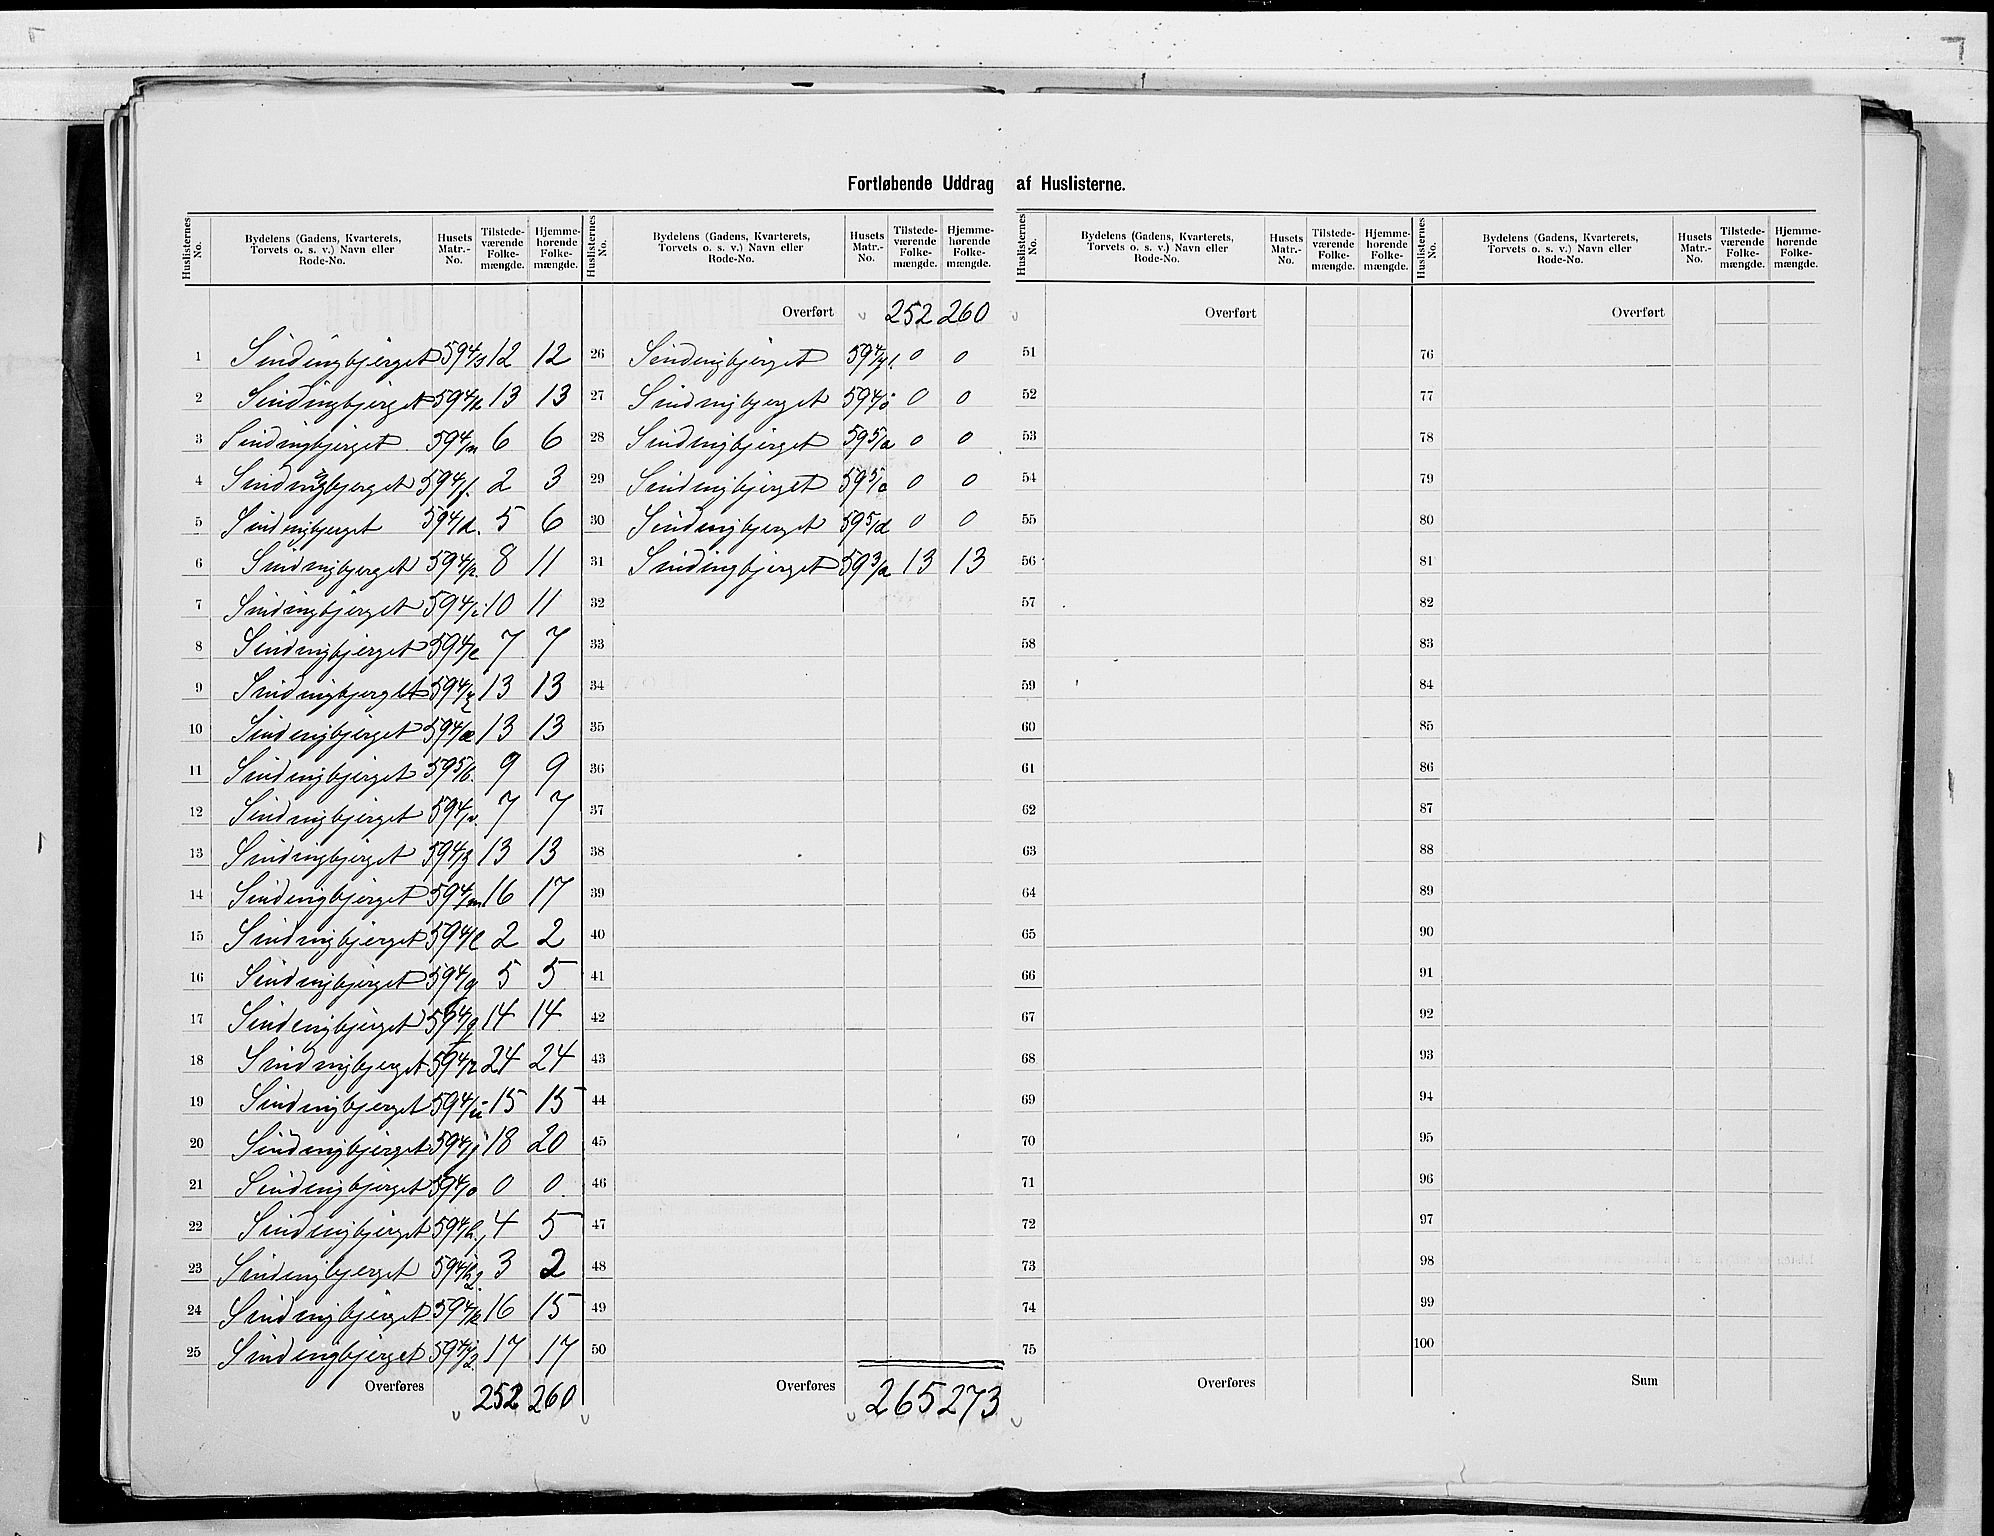 Fortløbende Uddrag af Huslisterne.
Huslisternes No. Bydelens (Gadens, Kvarterets, Torvets o. s. v.) Navn eller Rode-No. Husets Matr.-No. Tilstedeværende Folkemængde. Hjemmehørende Folkemængde.
1 Sindingbjerget 594/s 12 12
2 Sindingbjerget 594/k 13 13
3 Sindingbjerget 594/n 6 6
4 Sindingbjerget 594/f. 2 3
5 Sindingbjerget 594/d. 5 6
6 Sindingbjerget 594/r. 8 11
7 Sindingbjerget 594/i 10 11
8 Sindingbjerget 594/e 7 7
9 Sindingbjerget 594/z 13 13
10 Sindingbjerget 594/æ 13 13
11 Sindingbjerget 595/b. 9 9
12 Sindingbjerget 594/v. 7 7
13 Sindingbjerget 594/g 13 13
14 Sindingbjerget 594/m 16 17
15 Sindingbjerget 594/l 2 2
16 Sindingbjerget 594/q 5 5
17 Sindingbjerget 594/q 14 14
18 Sindingbjerget 594/r 24 24
19 Sindingbjerget 594/ü 15 15
20 Sindingbjerget 594/j 18 20
21 Sindingbjerget 594/o 0 0
22 Sindingbjerget 594/h 4 5
23 Sindingbjerget 594/h2 3 2
24 Sindingbjerget 594/k 16 15
25 Sindingbjerget 594/y2. 17 17
Overføres 252 260
Huslisternes No. Bydelens (Gadens, Kvarterets, Torvets o. s. v.) Navn eller Rode-No. Husets Matr.-No. Tilstedeværende Folkemængde. Hjemmehørende Folkemængde.
Overført 252 260
26 Sindingbjerget 594/y1. 0 0
27 Sindingbjerget 594/ö 0 0
28 Sindingbjerget 595/a 0 0
29 Sindingbjerget 595/c 0 0
30 Sindingbjerget 595/d 0 0
31 Sindingbjerget 593/a 13 13
32
33
34
35
36
37
38
39
40
41
42
43
44
45
46
47
48
49
50
Overføres 265 273
Huslisternes No. Bydelens (Gadens, Kvarterets, Torvets o. s. v.) Navn eller Rode-No. Husets Matr.-No. Tilstedeværende Folkemængde. Hjemmehørende Folkemængde.
Overført
51
52
53
54
55
56
57
58
59
60
61
62
63
64
65
66
67
68
69
70
71
72
73
74
75
Overføres
Huslisternes No. Bydelens (Gadens, Kvarterets, Torvets o. s. v.) Navn eller Rode-No. Husets Matr.-No. Tilstedeværende Folkemængde. Hjemmehørende Folkemængde.
Overført
76
77
78
79
80
81
82
83
84
85
86
87
88
89
90
91
92
93
94
95
96
97
98
99
100
Sum